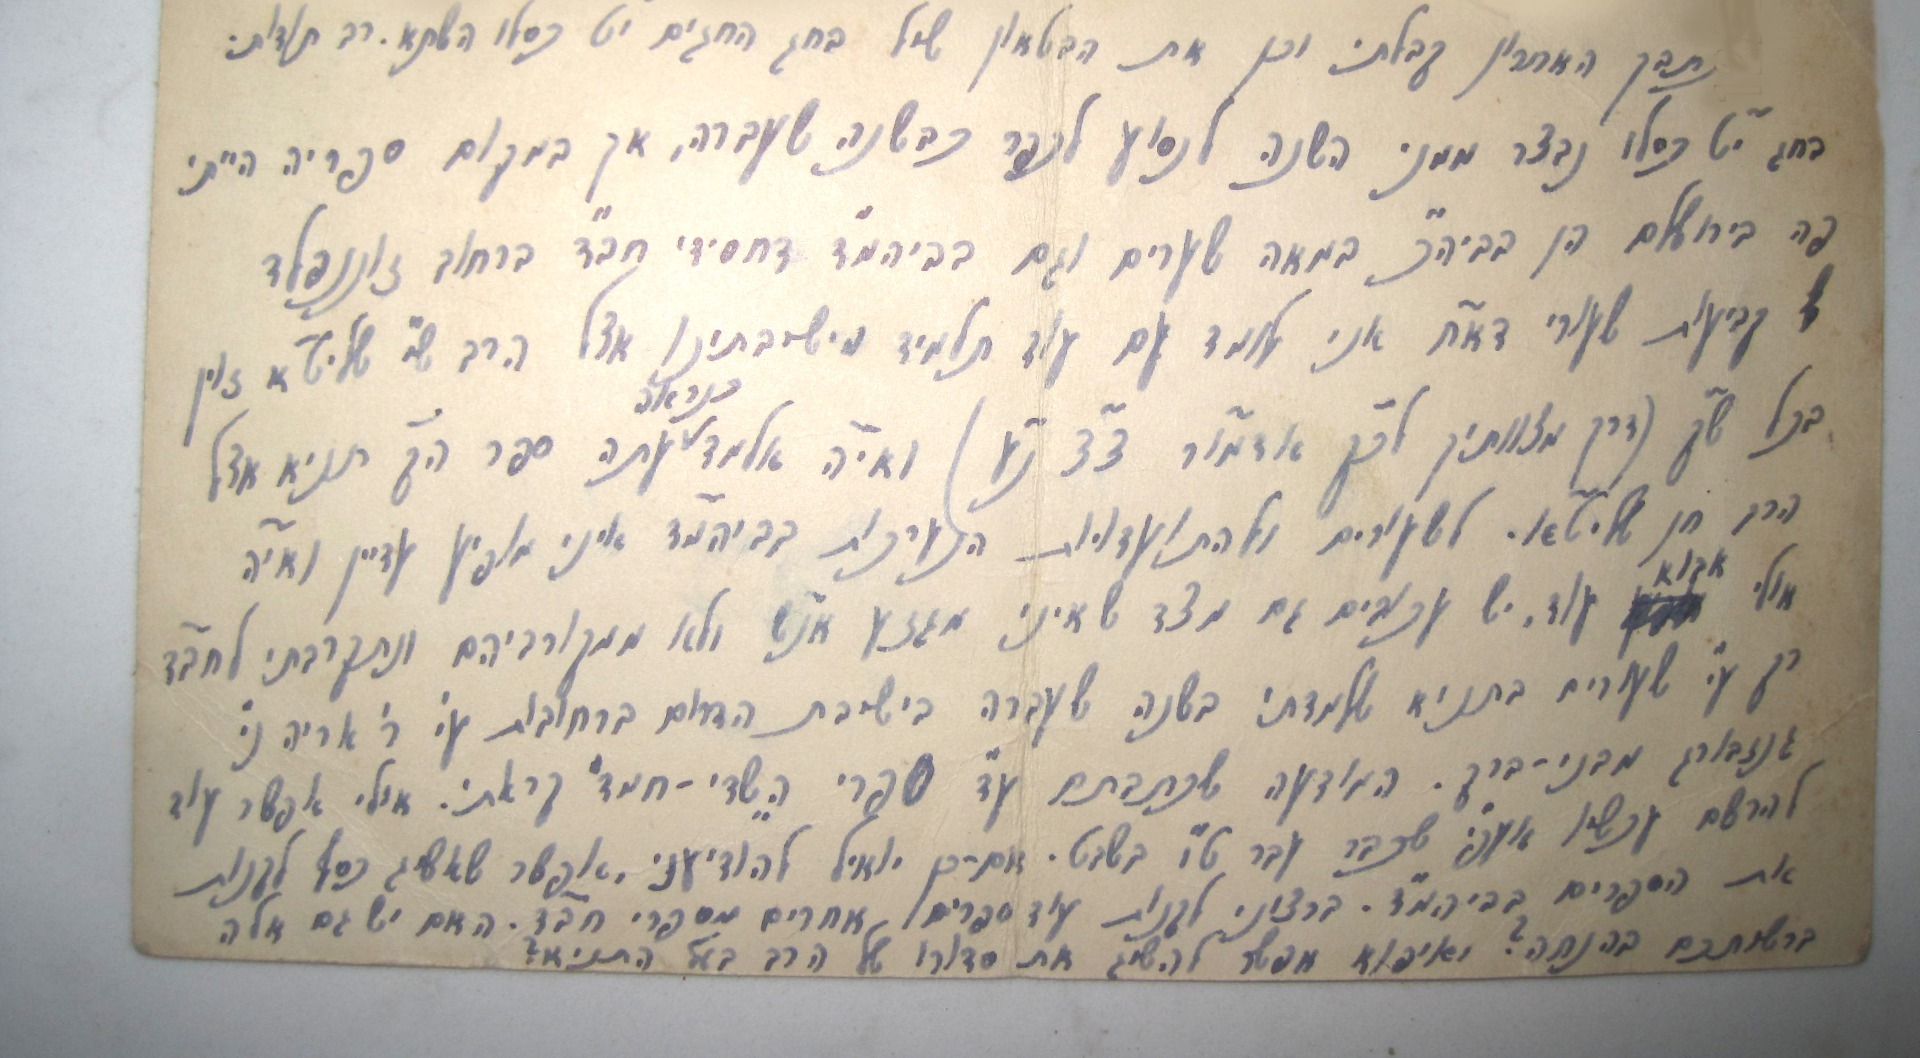 האחרון קבלתי וכן את הבטאון שי"ל בחג החגים י"ט כסלו השתא. רב תודות.
בחג י"ט כסלו נבצר ממני השנה לנסוע לכפר כבשנה שעברה, אך במקום ספריה הייתי
פה בירושלים הן בביהכ"נ במאה שערים וגם בביהמ"ד דחסידי חב"ד ברחוב זוננפלד
קביעות שעורי דא"ח אני לומד עם עוד תלמיד מישיבתינו אצל הרב שליט"א זוין
בכל ש"ק (דרך מצוותיך לכ"ק אדמו"ר צ"צ נ"ע) ואי"ה אלמד כנראה עתה ספר הק' תניא אצל
הרב חן שליט"א. לשעורים ולהתועדויות הנערכות בביהמ"ד איני מופיע עדיין ואי"ה
אולי אבוא עוד, יש עכובים גם מצד שאיני מגזע אנ"ש ולא ממקורביהם ונתקרבתי לחב"ד
רק ע"י שעורים בתניא שלמדתי בשנה שעברה בישיבת הדרום ברחובות ע"י ר' אריה ני'
גנזבורג מבני-ברק. המודעה שכתבתם ע"ד ספרי ה"שדי-חמד" קראתי. אולי אפשר עוד
להרשם עכשיו אע"פ שכבר עבר ט"ו בשבט. אם-כן יואיל להודיעני, אפשר שאשיג כסף לקנות
את הספרים בביהמ"ד. ברצוני לקנות עוד ספרים אחרים מספרי חב"ד. האם יש גם אלה
ברשותכם בהנחה? ואיפוא אפשר להשיג את סדורו של הרב בעל התניא?